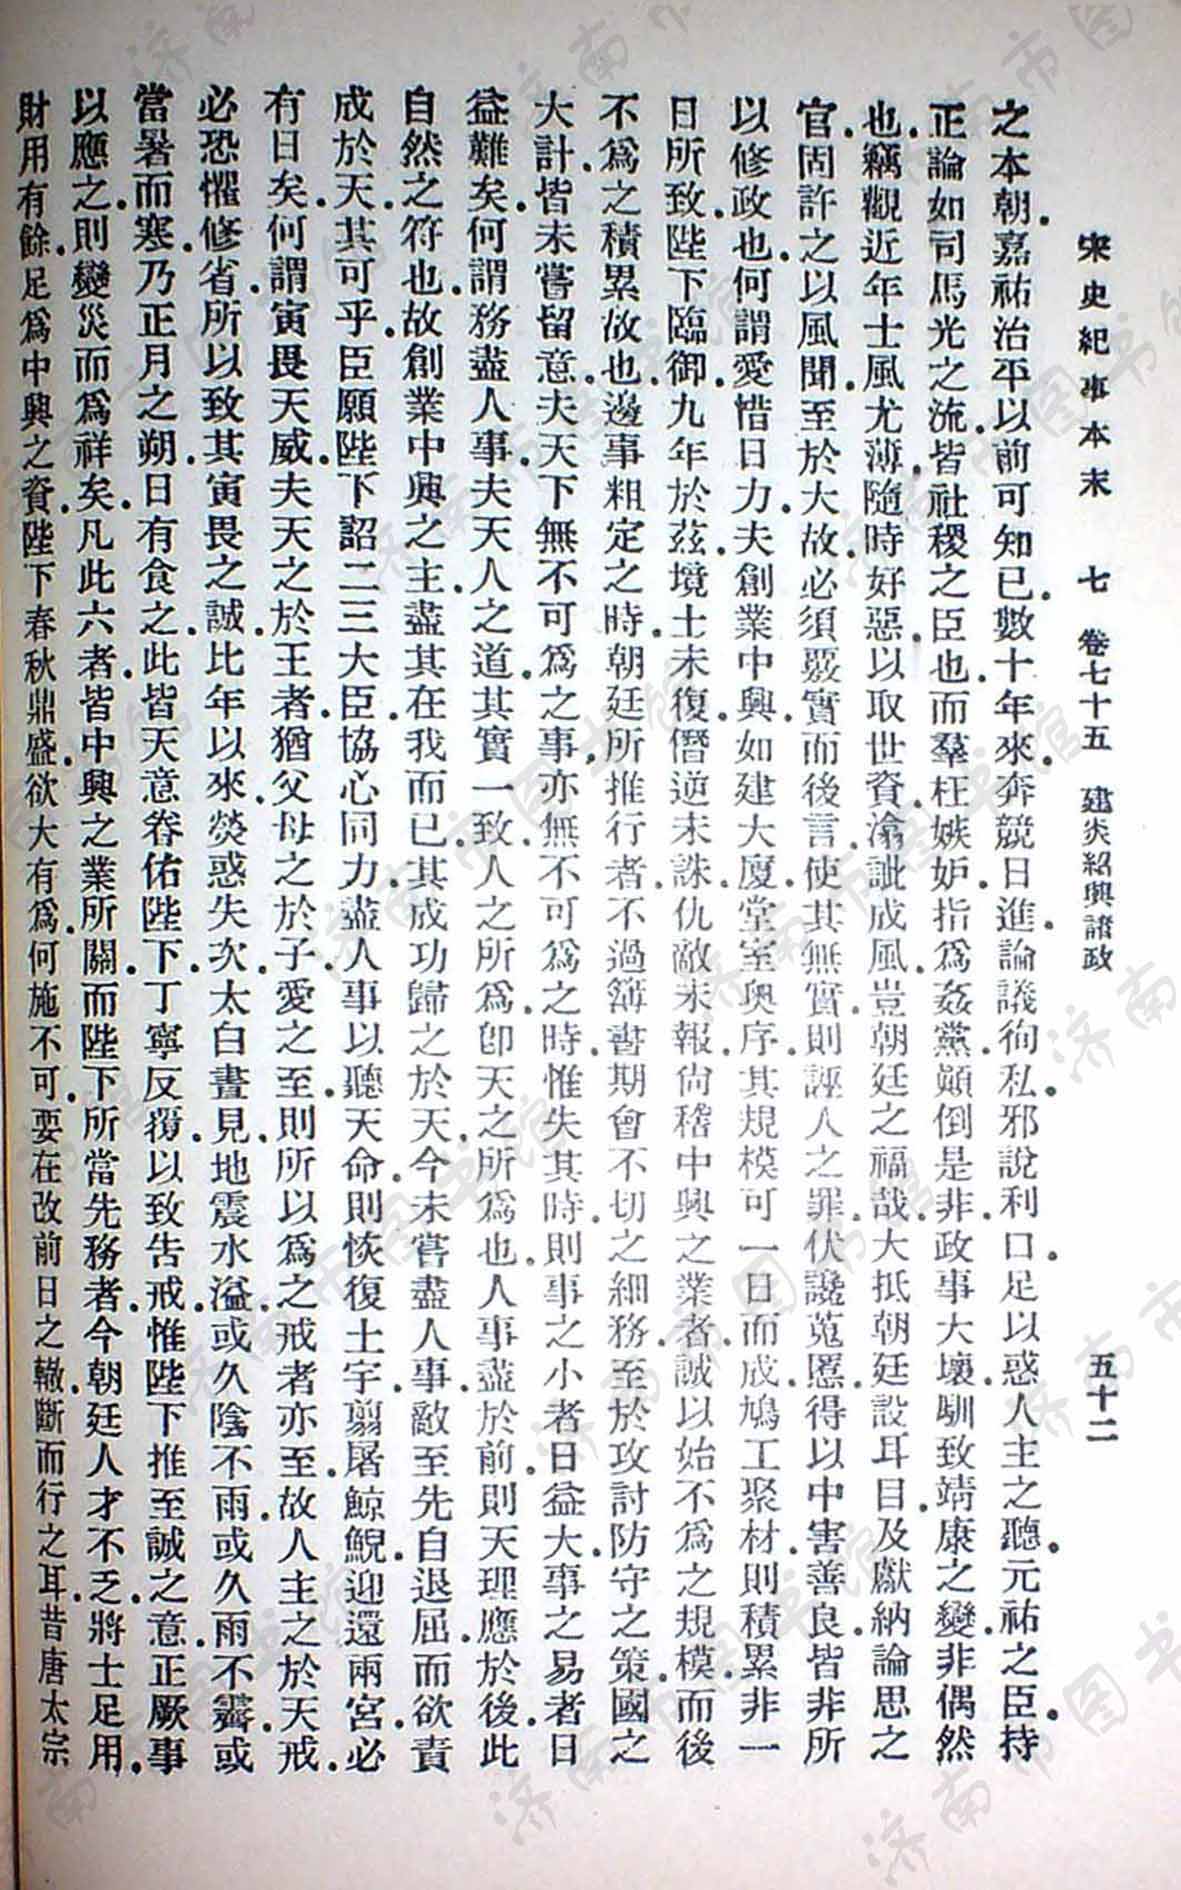 宋史紀事本末　七　卷七十五　建炎紹興諸政　五十二
之本朝嘉祐治平以前可知已數十年來奔競日進論議徇私邪說利口足以惑人主之聽元祐之臣持
正論如司馬光之流皆社稷之臣也而羣枉嫉妒指爲姦黨顚倒是非政事大壞馴致靖康之變非偶然
也竊觀近年士風尤薄隨時好惡以取世資潝訿成風豈朝廷之福哉大抵朝廷設耳目及獻納論思之
官固許之以風聞至於大故必須覈實而後言使其無實則誣人之罪伏讒蒐慝得以中害善良皆非所
以修政也何謂愛惜日力夫創業中興如建大廈堂室奧序其規模可一日而成鳩工聚材則積累非一
日所致陛下臨御九年於茲境土未復僭逆未誅仇敵未報尙稽中興之業者誠以始不爲之規模而後
不爲之積累故也邊事粗定之時朝廷所推行者不過簿書期會不切之細務至於攻討防守之策國之
大計皆未嘗留意夫天下無不可爲之事亦無不可爲之時惟失其時則事之小者日益大事之易者日
益難矣何謂務盡人事夫天人之道其實一致人之所爲卽天之所爲也人事盡於前則天理應於後此
自然之符也故創業中興之主盡其在我而已其成功歸之於天今未嘗盡人事敵至先自退屈而欲責
成於天其可乎臣願陛下詔二三大臣協心同力盡人事以聽天命則恢復土宇翦屠鯨鯢迎還兩宮必
有日矣何謂寅畏天威夫天之於王者猶父母之於子愛之至則所以爲之戒者亦至故人主之於天戒
必恐懼修省所以致其寅畏之誠比年以來熒惑失次太白晝見地震水溢或久陰不雨或久雨不霽或
當暑而寒乃正月之朔日有食之此皆天意眷佑陛下丁寧反覆以致告戒惟陛下推至誠之意正厥事
以應之則變災而爲祥矣凡此六者皆中興之業所關而陛下所當先務者今朝廷人才不乏將士足用
財用有餘足爲中興之資陛下春秋鼎盛欲大有爲何施不可要在改前日之轍斷而行之耳昔唐太宗
济南市图书馆